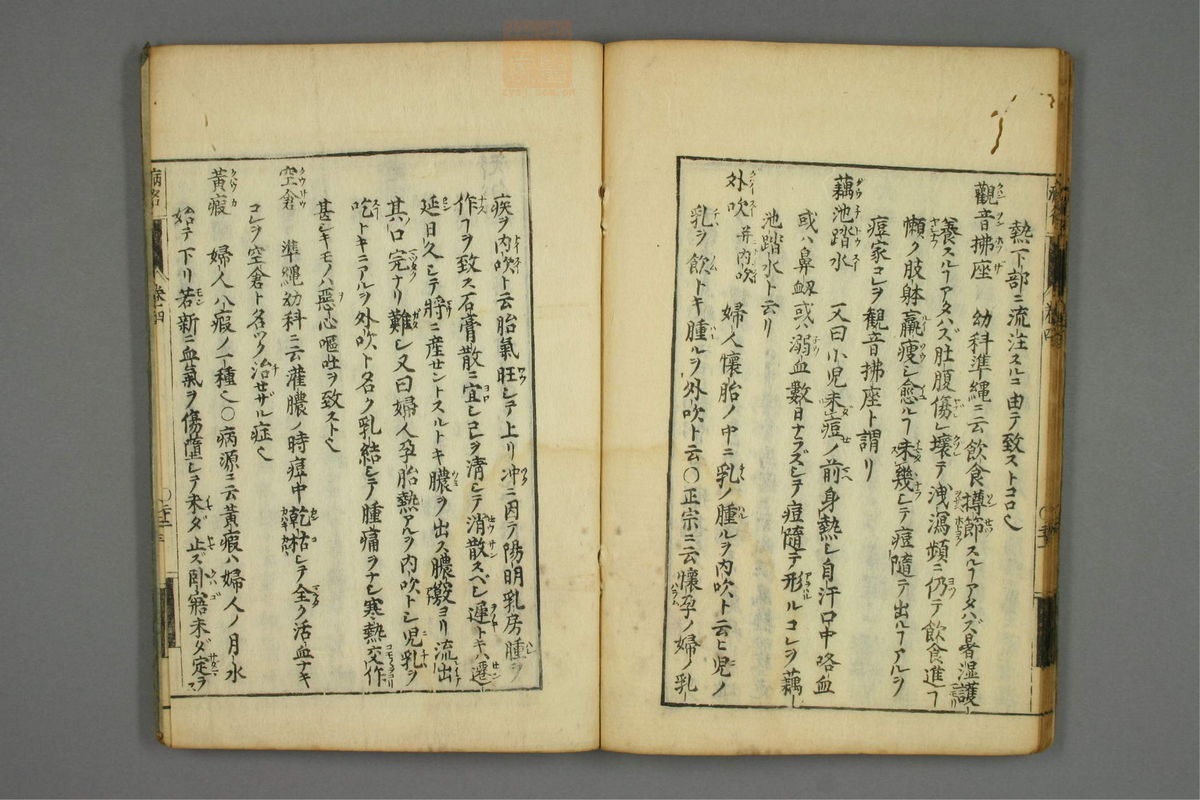 熱下部ニ流注スルニ由テ致ストコロ也
觀音拂座　幼科準縄ニ云飲食撙節スルヿアタハズ暑湿護
養スルヿアタハズ肚腹傷レ壊テ洩瀉頻ニ仍テ飲食進ヿ
懶ク肢躰羸痩シ愈ルヿ未幾シテ痘隨テ出ルヿアルヲ
痘家コレヲ観音拂座ト謂リ
藕池踏水　又曰小児未痘ノ前身熱シ自汗口中咯血
或ハ鼻衂或ハ溺血數日ナラズシテ痘隨テ形ルコレヲ藕
池踏水ト云リ
外吹并内吹　婦人懐胎ノ中ニ乳ノ腫ルヲ内吹ト云ヒ児ノ
乳ヲ飲トキ腫ルヲ外吹ト云〇正宗ニ云懐孕ノ婦ノ乳
疾ヲ内吹ト云胎氣旺シテ上リ冲ニ因テ陽明乳房腫ヲ
作ヿヲ致ス石膏散ニ宜シコヲ清シテ消散スベシ遲トキハ遷
延日久シテ将ニ産セントスルトキ膿ヲ出ス膿ヨリ流出
其口完ナリ難シ又曰婦人孕胎熱アルヲ内吹トシ児乳ヲ
吃トキニアルヲ外吹ト名ク乳結シテ腫痛ヲナシ寒熱交作
甚シキモノハ惡心嘔吐ヲ致スト也
空倉　準縄幼科ニ云灌膿ノ時痘中乾枯シテ全ク活血ナキ
コレヲ空倉ト名ツク治セザル症也
黄瘕　婦人八瘕ノ一種也〇病源ニ云黄瘕ハ婦人ノ月水
始テ下リ若新ニ血氣ヲ傷墮シテ未ダ止ズ卧寤未ダ定ヲ